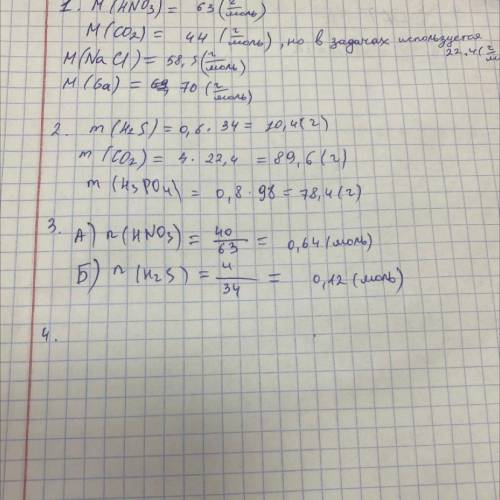 1. M(HNO3) = 63 (г/моль)
M(CO2) = 44 (г/моль), но в задачах используется 22.4 (г/м
M(NaCl) = 58,5 (г/моль)
M(Ga) = 70 (г/моль)
2. m(H2S) = 0,6 · 34 = 10,4 (г)
m(CO2) = 4 · 22,4 = 89,6 (г)
m(H3PO4) = 0,8 · 98 = 78,4 (г)
3. А) n(HNO3) = 40/63 = 0,64 (моль)
Б) n(H2S) = 4/34 = 0,12 (моль)
4.